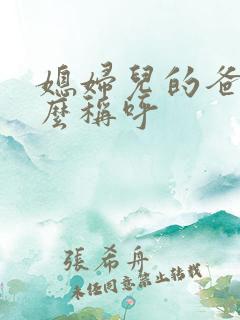 媳婦兒的爸
麼稱呼
張希舟
未經同意禁止轉載